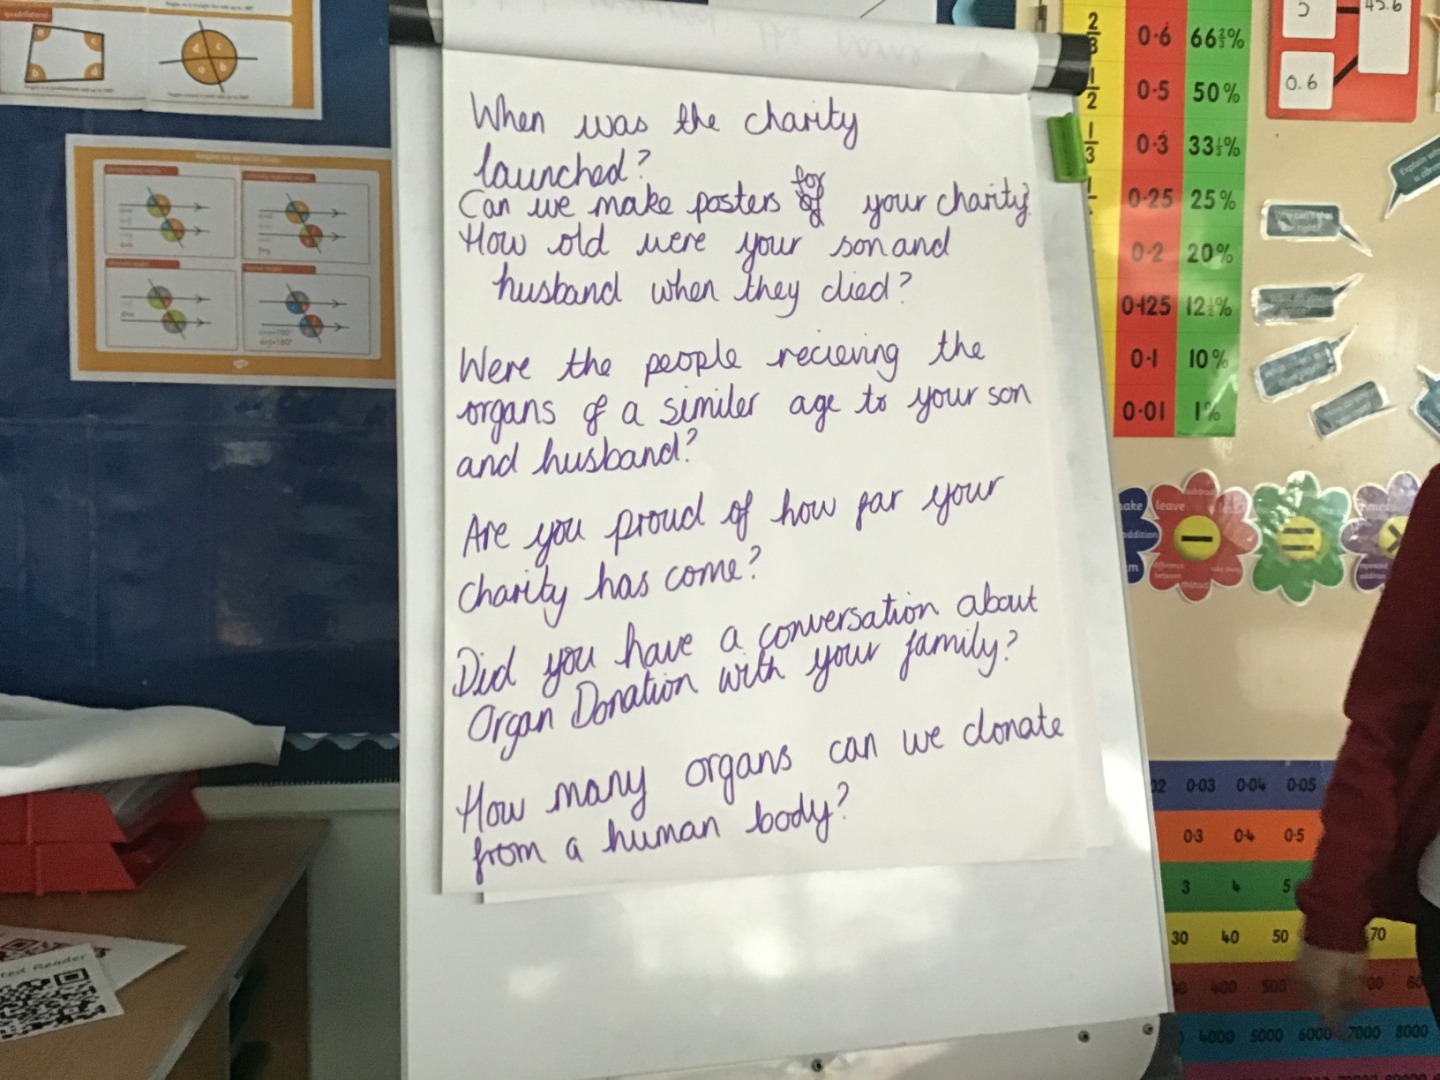 When was the charity
launched?
Can we make posters for your charity?
How old were your son and
husband when they died?
Were the people recieving the
organs of a similer age to your son
and husband?
Are you proud of how far your
charity has come?
Did you have a conversation about
Organ Donation with your family?
How many organs can we donate
from a human body?
2/3 0·6 66 2/3%
1/2 0·5 50%
1/3 0·3 33 1/3%
0·25 25%
0·2 20%
0·125 12 1/2%
0·1 10%
0·01 1%
45.6
0.6
leave
minus
addition
0·03 0·04 0·05
0·3 0·4 0·5
3 4 5
30 40 50 70
400 500
4000 5000 6000 7000 8000
ted Reader